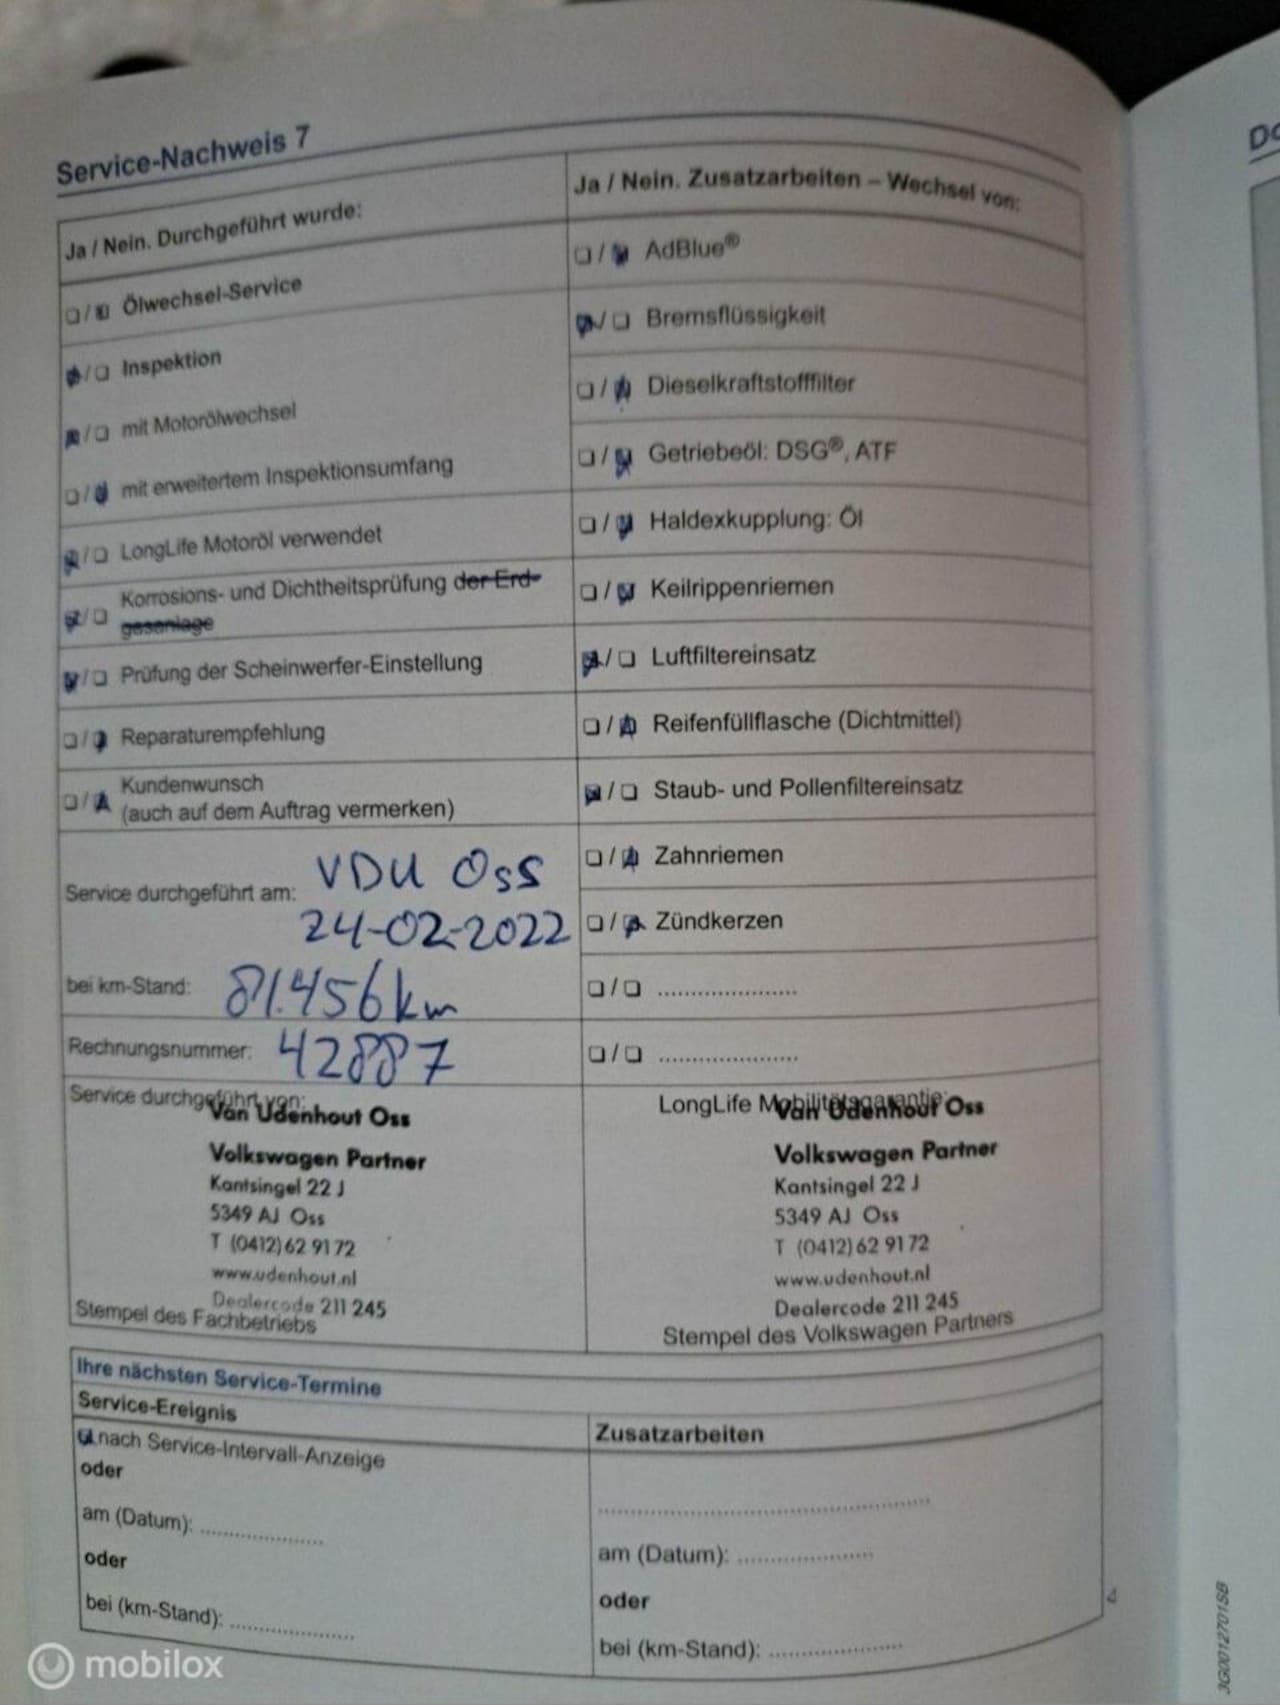 Service-Nachweis 7
Ja / Nein. Durchgeführt wurde:
❏ / ❏ Ölwechsel-Service
❏ / ❏ Inspektion
❏ / ❏ mit Motorölwechsel
❏ / ❏ mit erweitertem Inspektionsumfang
❏ / ❏ LongLife Motoröl verwendet
❏ / ❏ Korrosions- und Dichtheitsprüfung der Erd-
gasanlage
❏ / ❏ Prüfung der Scheinwerfer-Einstellung
❏ / ❏ Reparaturempfehlung
❏ / ❏ Kundenwunsch
(auch auf dem Auftrag vermerken)
Service durchgeführt am: VDU Oss
24-02-2022
bei km-Stand: 81.456 km
Rechnungsnummer: 42887
Service durchgeführt von:
Van Udenhout Oss
Volkswagen Partner
Kantsingel 22 J
5349 AJ Oss
T (0412) 62 91 72
www.udenhout.nl
Dealercode 211 245
Stempel des Fachbetriebs
Ja / Nein. Zusatzarbeiten – Wechsel von:
❏ / ❏ AdBlue®
❏ / ❏ Bremsflüssigkeit
❏ / ❏ Dieselkraftstofffilter
❏ / ❏ Getriebeöl: DSG®, ATF
❏ / ❏ Haldexkupplung: Öl
❏ / ❏ Keilrippenriemen
❏ / ❏ Luftfiltereinsatz
❏ / ❏ Reifenfüllflasche (Dichtmittel)
❏ / ❏ Staub- und Pollenfiltereinsatz
❏ / ❏ Zahnriemen
❏ / ❏ Zündkerzen
❏ / ❏ .....................
❏ / ❏ .....................
LongLife Mobilitätsgarantie:
Van Udenhout Oss
Volkswagen Partner
Kantsingel 22 J
5349 AJ Oss
T (0412) 62 91 72
www.udenhout.nl
Dealercode 211 245
Stempel des Volkswagen Partners
Ihre nächsten Service-Termine
Service-Ereignis
❏ nach Service-Intervall-Anzeige
oder
am (Datum): ..................
oder
bei (km-Stand): ..................
Zusatzarbeiten
..................................................
am (Datum): ....................
oder
bei (km-Stand): ....................
3G0012701SB
Do
mobilox